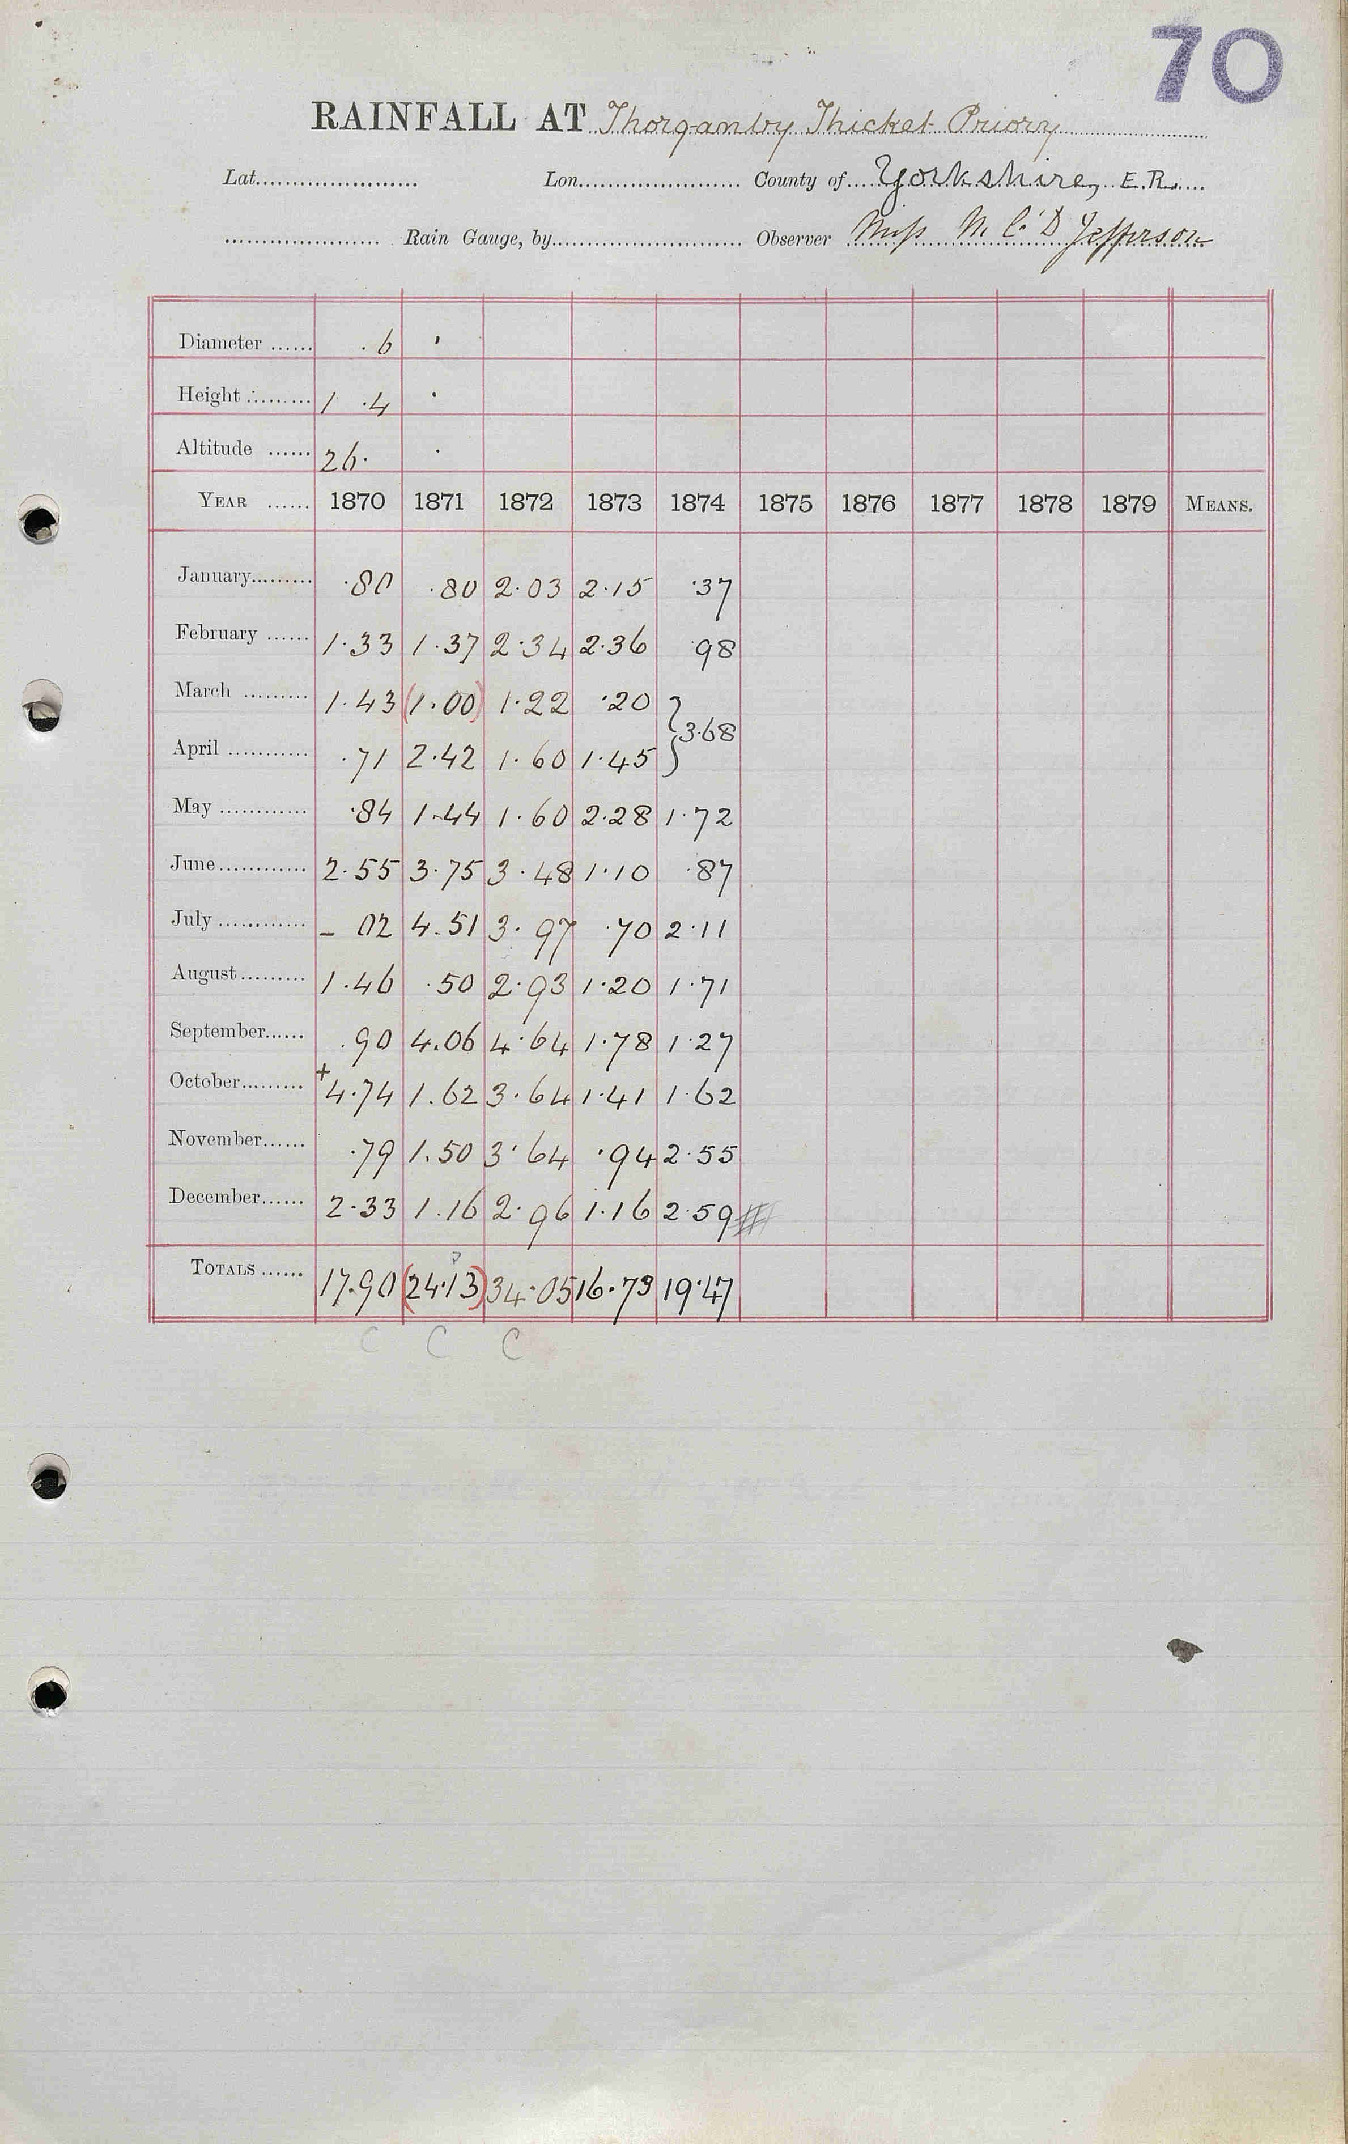 70
RAINFALL AT Thorganby Thicket Priory
Lat. Lon. County of Yorkshire, E.R.
Rain Gauge, by Observer Miss M. C. D Jefferson
Diameter 6 ·
Height 1 ·4 ·
Altitude 26· ·
YEAR 1870 1871 1872 1873 1874 1875 1876 1877 1878 1879 MEANS.
January ·80 ·80 2·03 2·15 ·37
February 1·33 1·37 2·34 2·36 ·98
March 1·43 (1·00) 1·22 ·20 } 3·68
April ·71 2·42 1·60 1·45
May ·84 1·44 1·60 2·28 1·72
June 2·55 3·75 3·48 1·10 ·87
July – 02 4.51 3·97 ·70 2·11
August 1·46 ·50 2·93 1·20 1·71
September .90 4.06 4·64 1·78 1·27
October +4·74 1.62 3·64 1·41 1·62
November ·79 1.50 3·64 ·94 2·55
December 2·33 1·16 2·96 1·16 2·59
TOTALS 17·90 (24·13) 34·05 16·73 19·47
C C C